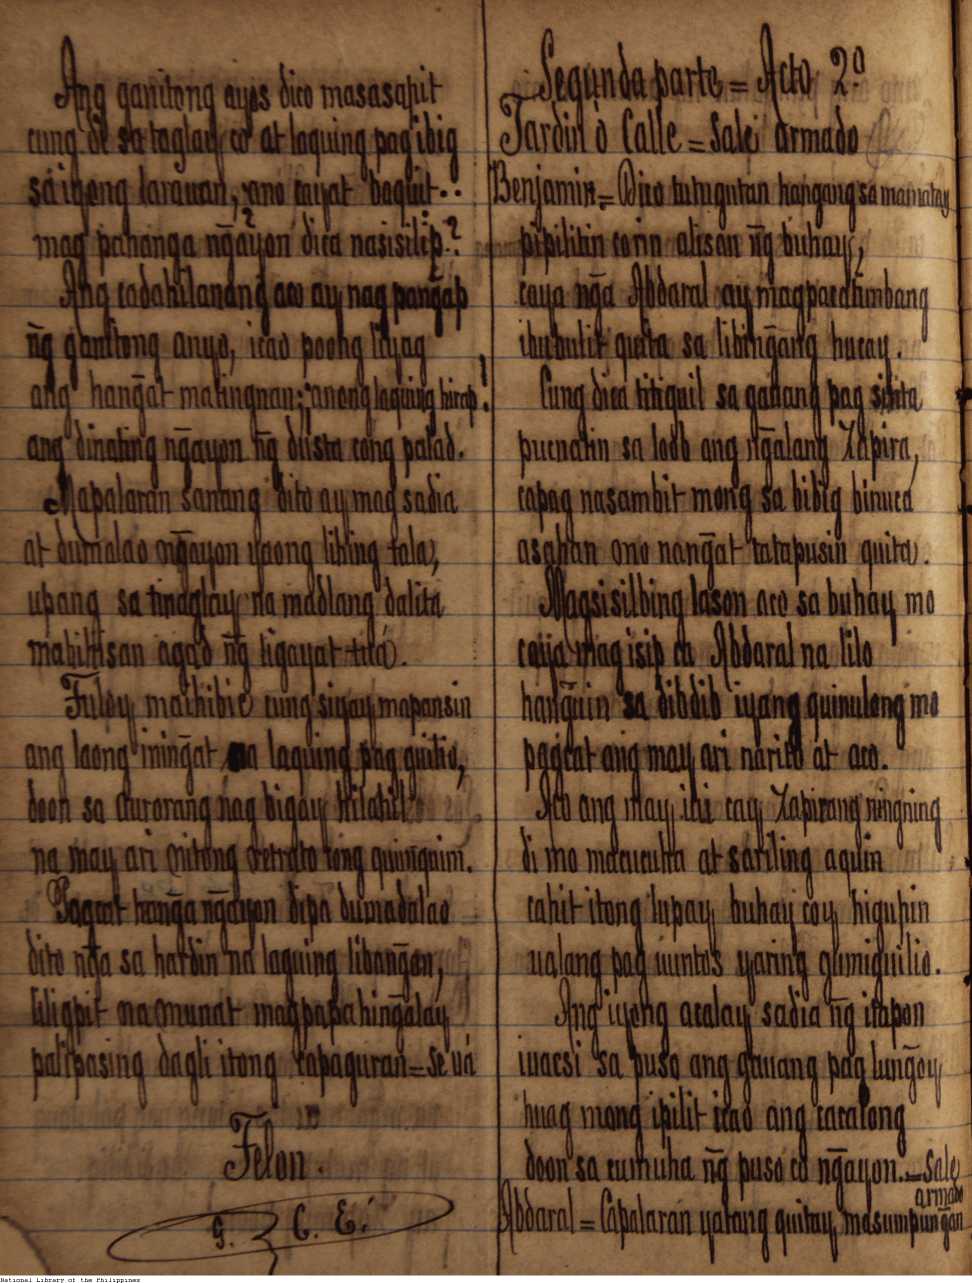 Ang ganitong ayos dico masasapit
cung di sa taglay co at laquing pag ibig
sa iyong larauan, ano cayat baguit..
mag pahanga n̄gayon dica nasisilip?
Ang cadahilanang aco ay nag pan̄gap
n̄g ganitong anyo, icao poong liyag
ang han̄gat matingnan; anong laquing hirap!
ang dinating n̄gayon n̄g diista cong palad.
Mapalaran sanang dito ay mag sadia
at dumalao n̄gayon yaong libing tala,
upang sa tinaglay na madlang dalita
mahihisan agad n̄g ligayat tua.
Tuloy maihibic cung siyay mapansin
ang laong inin̄gat sa laquing pag guilio,
doon sa aurorang nag bigay hilahil
na may ari nitong retrato cong quimquim.
Pagcat han̄ga n̄gayon dipa dumadalao
dito n̄ga sa hardin na laguing liban̄gan,
liligpit na munat magpapahin̄galay
palipasing dagli itong capaguran = Se vá
Telon.
G. C. E.
Segunda parte = Acto 2º
Jardin ò Calle = Sale armado
Benjamin = Dito tutugutan hangang sa mamatay
pipilitin corin alisan n̄g buhay,
caya n̄ga Abdaral ay magpacatimbang
ibubulit quita sa libin̄gang hucay.
Cung dica titiguil sa gauang pag sinta
pucnatin sa loob ang n̄galang Zapira,
capag nasambit mong sa bibig binuca
asahan ono nan̄gat tatapusin quita.
Magsisilbing lason aco sa buhay mo
caya mag isip ca Abdaral na lilo
han̄guin sa dibdib iyang quinulong mo
pagcat ang may ari narito at aco.
Aco ang may ibi cay Zapirang ningning
di mo macucuha at sariling aquin
cahit itong lupay, buhay coy higupin
ualang pag uuntos yaring gumiguilio.
Ang iyong acalay sadia n̄g itapon
iuacsi sa puso ang gauang pag lun̄goy
huag mong ipilit icao ang cacatong
doon sa cumuha n̄g puso co n̄gayon. = Sale
armado
Abdaral = Capalaran yatang quitay masumpun̄gan